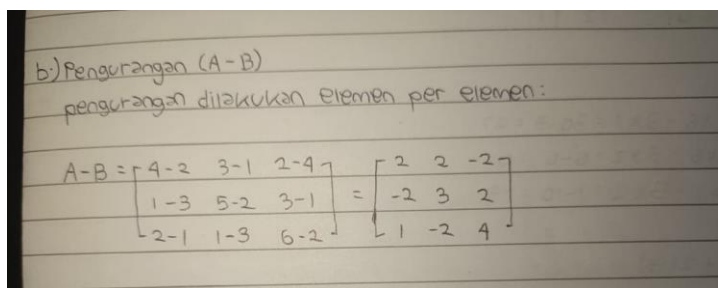 b.) Pengurangan (A-B)
pengurangan dilakukan elemen per elemen:
4-2 3-1 2-4 2 2 -2
A-B = 1-3 5-2 3-1 = -2 3 2
2-1 1-3 6-2 1 -2 4